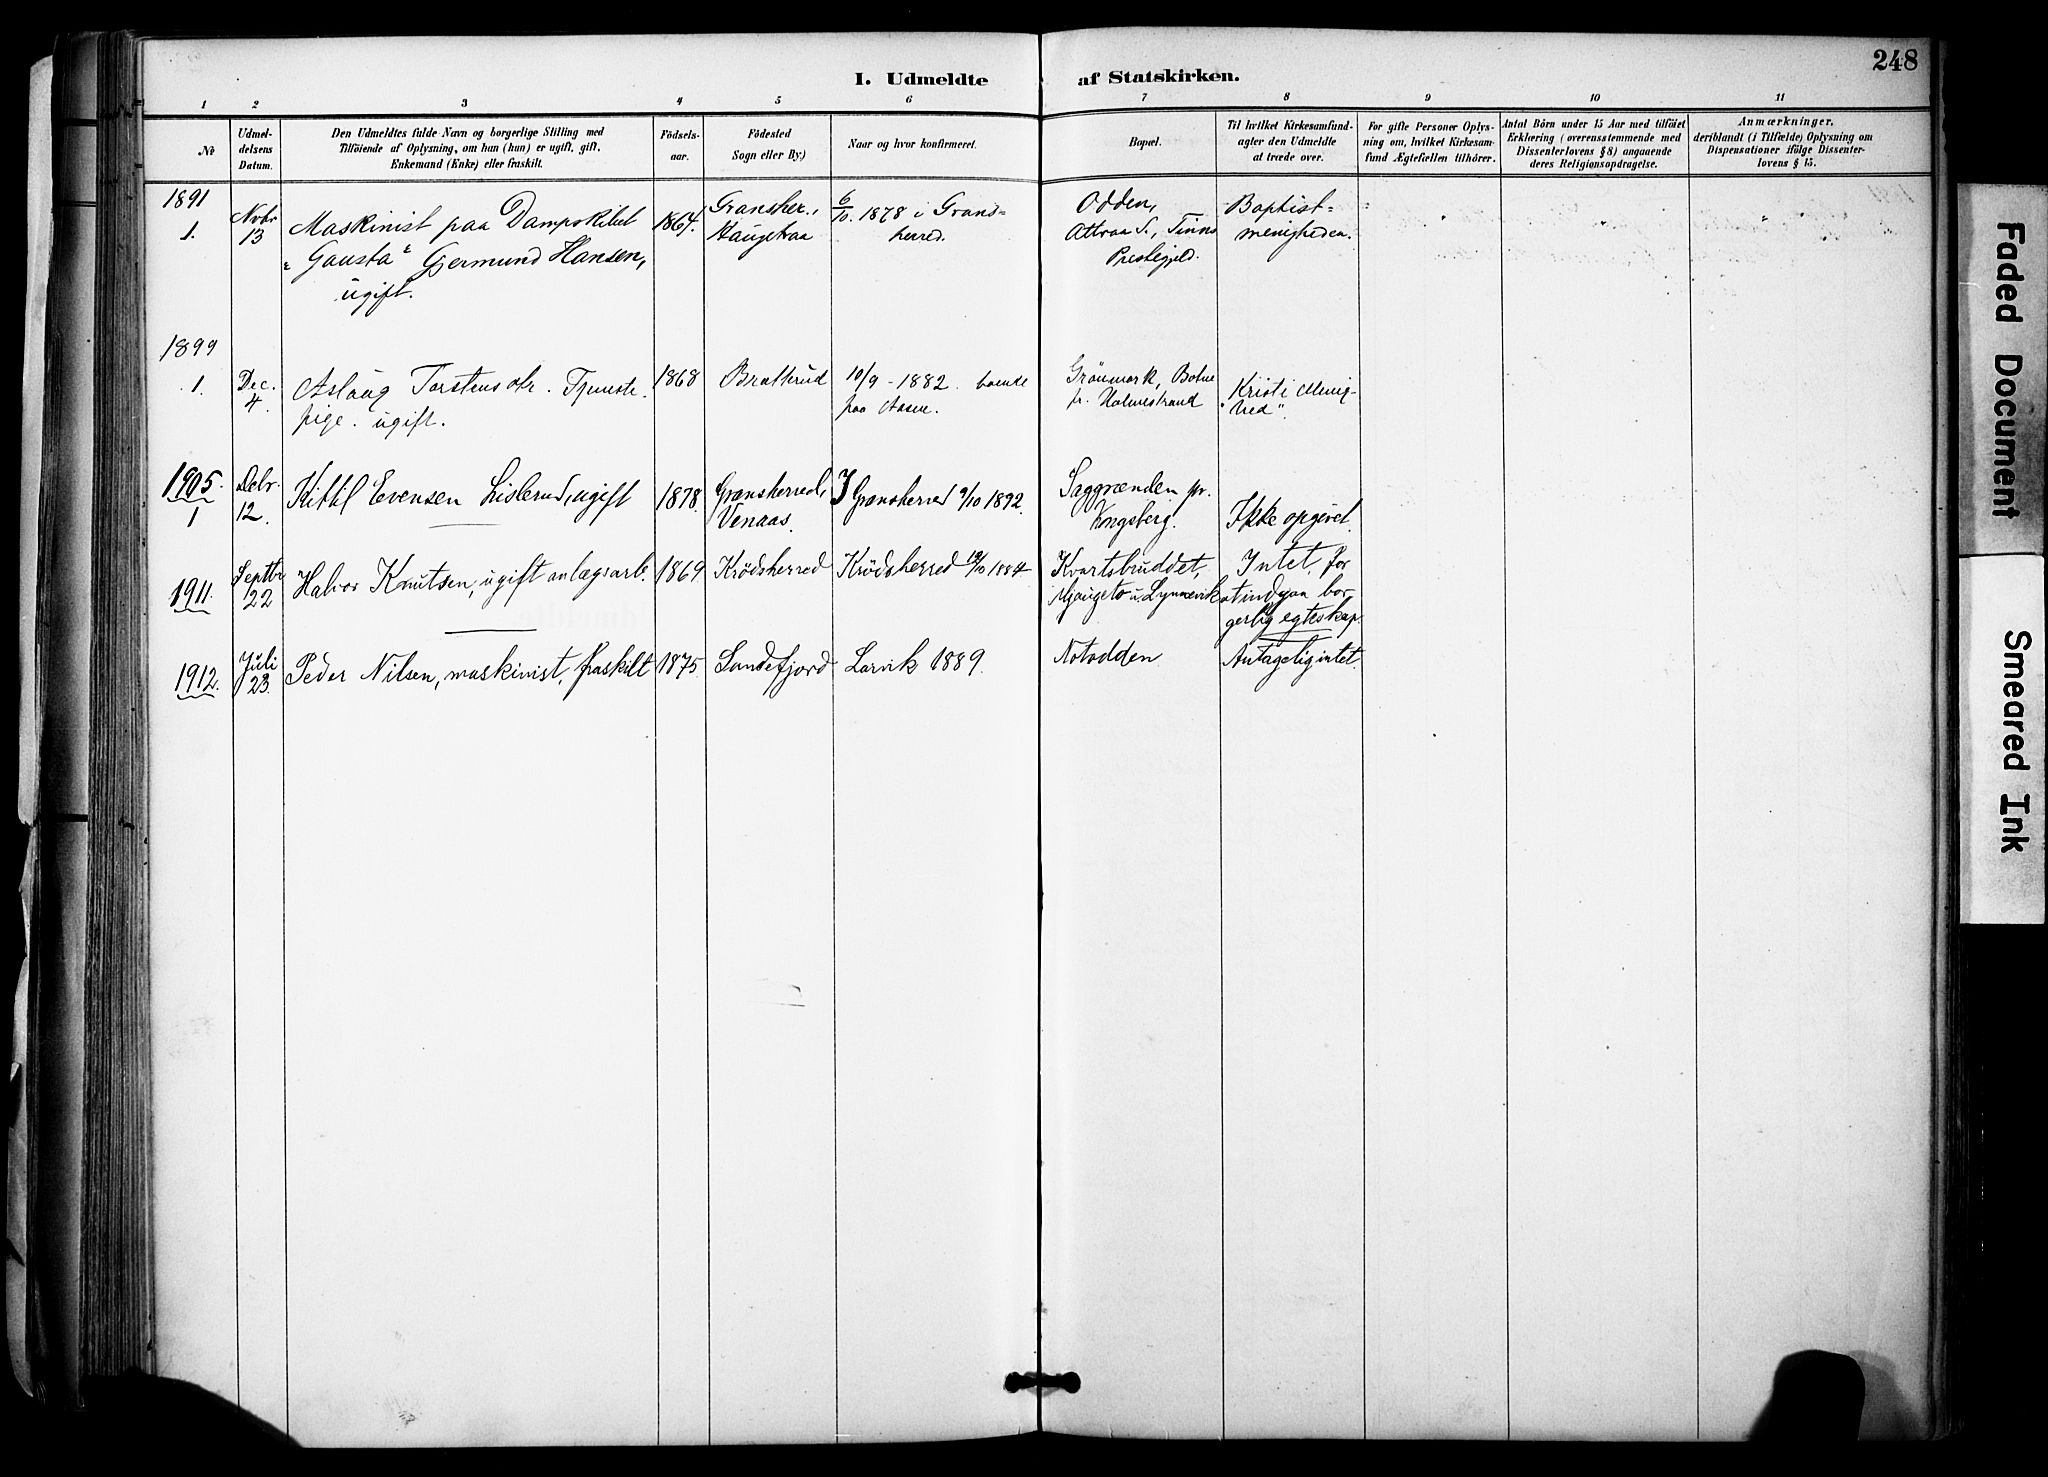 248
I. Udmeldte af Statskirken.
1 2 3 4 5 6 7 8 9 10 11
No
Udmel-
delsens
Datum.
Den Udmeldtes fulde Navn og borgerlige Stilling med
Tilföiende af Oplysning, om han (hun) er ugift, gift,
Enkemand (Enke) eller fraskilt.
Födsels-
aar.
Födested
Sogn eller By.)
Naar og hvor konfirmeret.
Bopæl.
Til hvilket Kirkesamfund
agter den Udmeldte
at træde over.
For gifte Personer Oplys-
ning om, hvilket Kirkesam-
fund Ægtefællen tilhörer.
Antal Börn under 15 Aar med tilföiet
Erklæring (overensstemmende med
Dissenterlovens § 8) angaaende
deres Religionsopdragelse.
Anmærkninger,
deriblandt (i Tilfælde) Oplysning om
Dispensationer ifölge Dissenter-
lovens § 15.
1891
1.
Novbr
13
Maskinist paa Dampskibet
"Gausta" Gjermund Hansen,
ugift.
1864.
Gransher.,
Haugetraa
6/10. 1878 i Grans-
herred.
Odden,
Attraa S., Tinns
Prestegjeld.
Baptist-
menigheden.
1899
1.
Dec.
4.
Aslaug Torstensdtr. Tjeneste
pige. ugift.
1868
Bratterud
10/9 - 1882. boende
paa Aasen.
Grönmark, Botne
pr. Holmestrand
"Kristi Menig-
hed".
1905.
1
Debr.
12.
Kittil Evensen Lislerud, ugift
1878.
Gransherred,
Venaas.
I Gransherred 9/10 1892.
Saggrænden pr.
Kongsberg.
Ikke opgivet.
1911.
Septbr
22
Halvor Knutsen, ugift anlægsarb.
1869
Krödsherred
Krödsherred 12/10 1884
Kvartsbruddet,
Intet, for
at indgaa bor-
gerlig egteskap.
1912.
Juli
23.
Peder Nilsen, maskinist, fraskilt
1875.
Sandefjord
Larvik 1889.
Notodden
Antagelig intet.
Faded Document
Smeared Ink